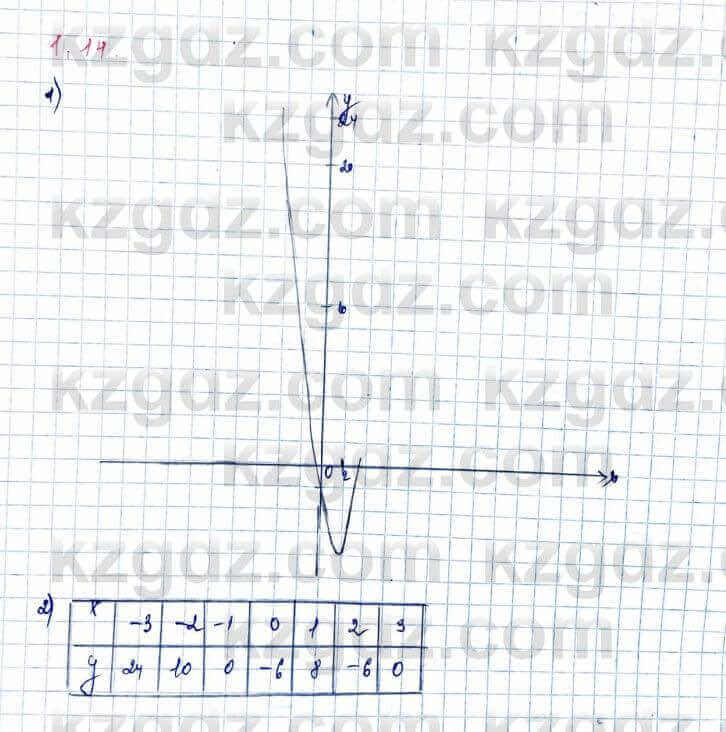 1.14.
1)
y
24
20
6
0 1 2
2)
x -3 -2 -1 0 1 2 3
y 24 10 0 -6 8 -6 0
kzgdz.com
kzgdz.com
kzgdz.com
kzgdz.com
kzgdz.com
kzgdz.com
kzgdz.com
kzgdz.com
kzgdz.com
kzgdz.com
kzgdz.com
kzgdz.com